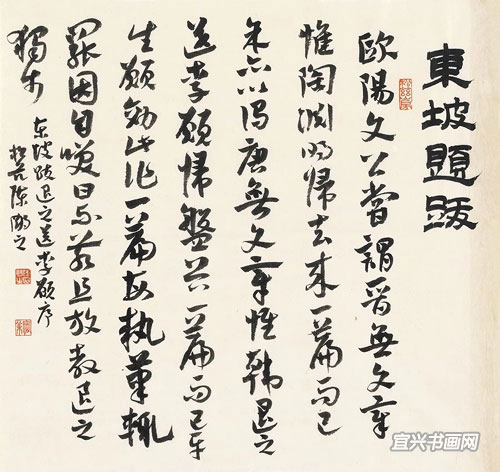 東坡題跋
歐陽文公嘗謂晉無文章
惟陶淵明歸去來一篇而已
余亦以謂唐無文章惟韓退之
送李願歸盤谷一篇而已平
生願效此作一篇每執筆輒
罷因自咲曰不若且放教退之
獨步
東坡跋退之送李願序
陳之
宜兴书画网